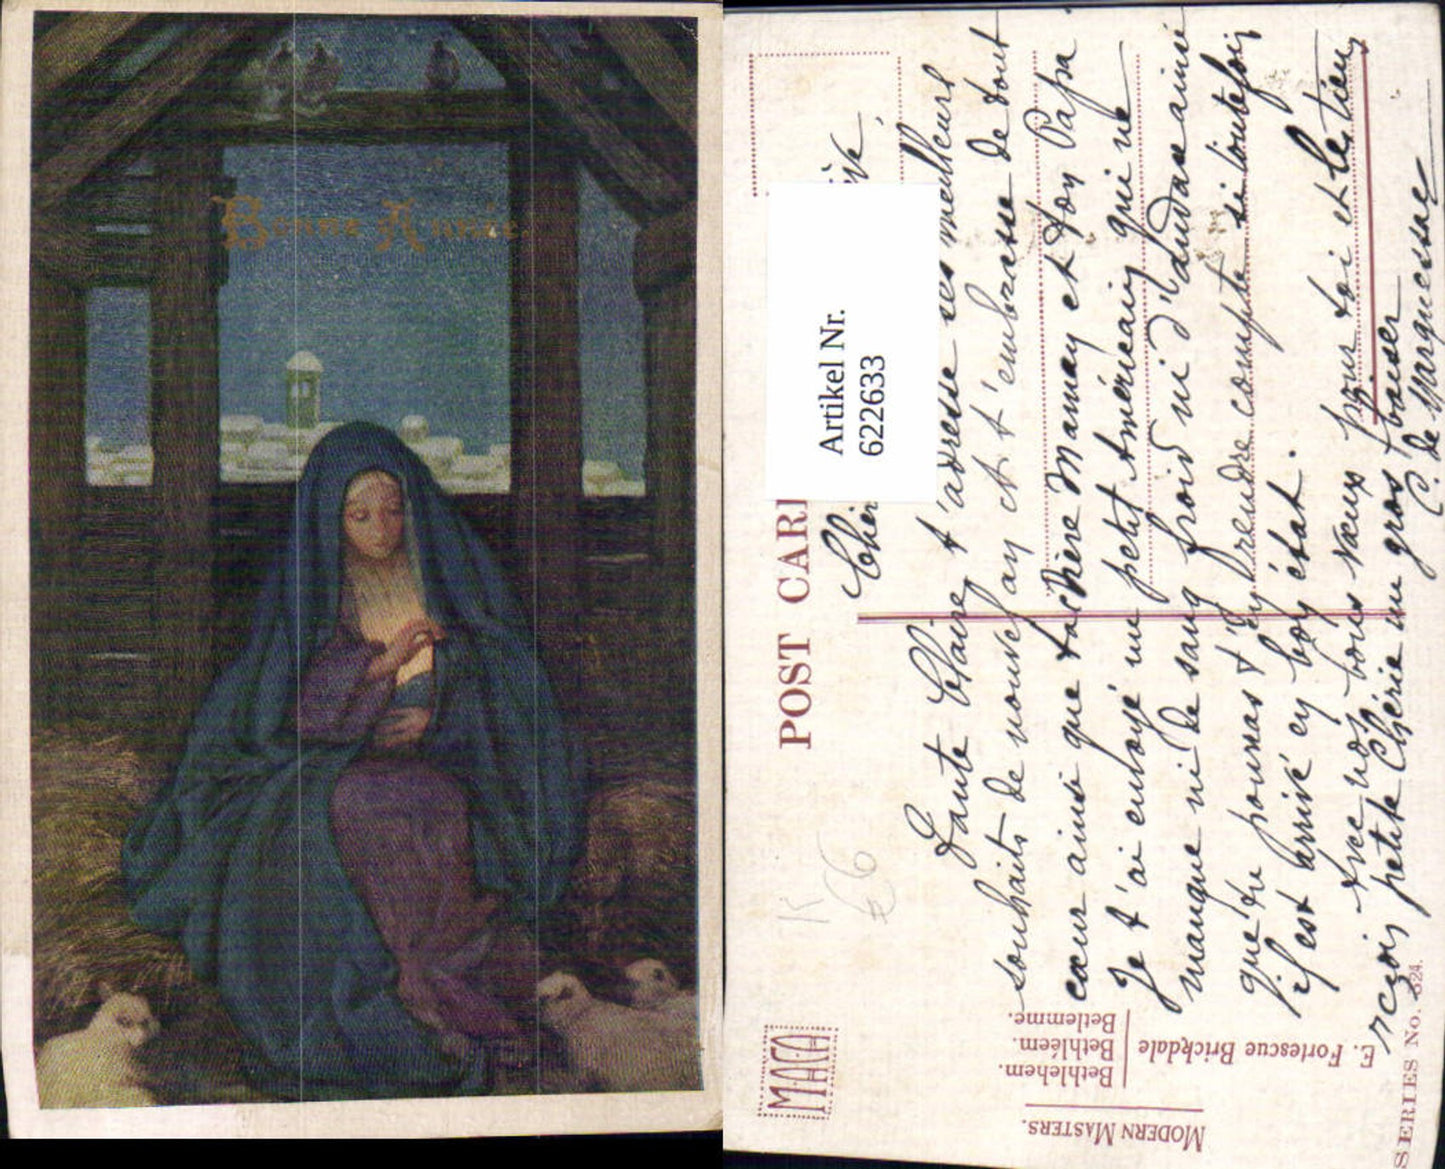 Bonne Année
POST CAR
Artikel Nr.
622633
Tante Claire t'adresse ses meilleurs
souhaits de nouvel an et t'embrasse de tout
cœur ainsi que ta chère Maman et ton Papa
Je t'ai envoyé un petit Américain qui ne
manque ni de sang froid ni d'audace ainsi
que tu pourras t'y rendre compte si toutefois
il est arrivé en bon état.
Avec nos bons vœux pour toi et les tiens
reçois petite Chérie un gros baiser
C. de Marquessac
MODERN MASTERS.
Bethlehem.
Bethléem.
Betlemme.
E. Fortescue Brickdale
SERIES No. 324.
K
€6